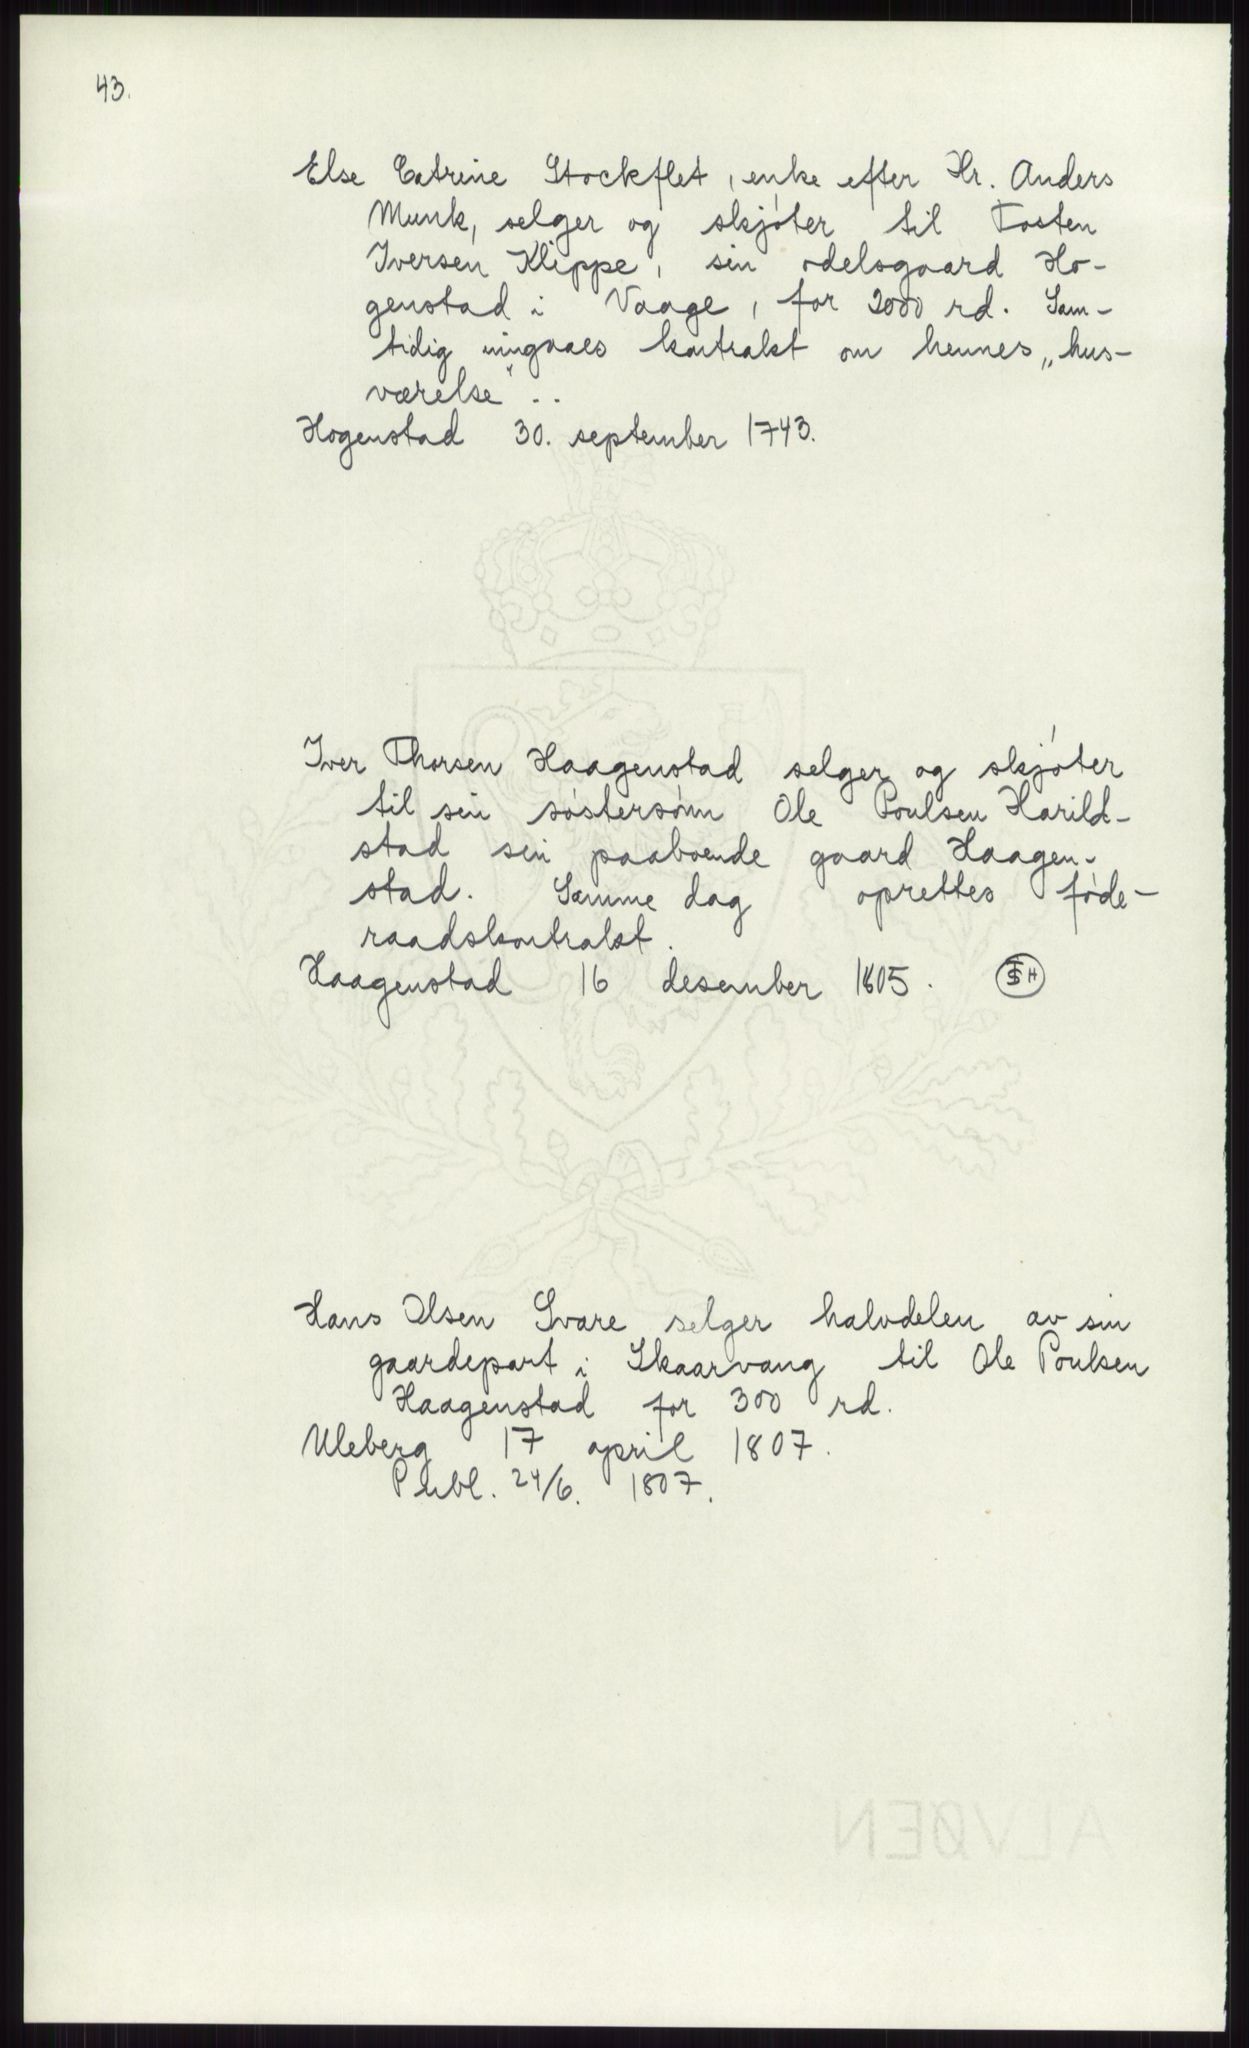 43.
Else Catrine Stockflet, enke efter Hr. Anders
Munk, selger og skjøter til Tosten
Iversen Klippe, sin odelsgaard Ho-
genstad i Vaage, for 2000 rd. Sam-
tidig inngaaes kontrakt om hennes „hus-
værelse"..
Hogenstad 30. september 1743.
Iver Thorsen Haagenstad selger og skjøter
til sin søstersønn Ole Poulsen Harild-
stad sin paaboende gaard Haagen-
stad. Samme dag oprettes føde-
raadskontrakt.
Haagenstad 16 desember 1805.
Hans Olsen Svare selger halvdelen av sin
gaardepart i Skaarvang til Ole Poulsen
Haagenstad for 300 rd.
Uleberg 17 april 1807.
Publ. 24/6. 1807.
ALVØEN